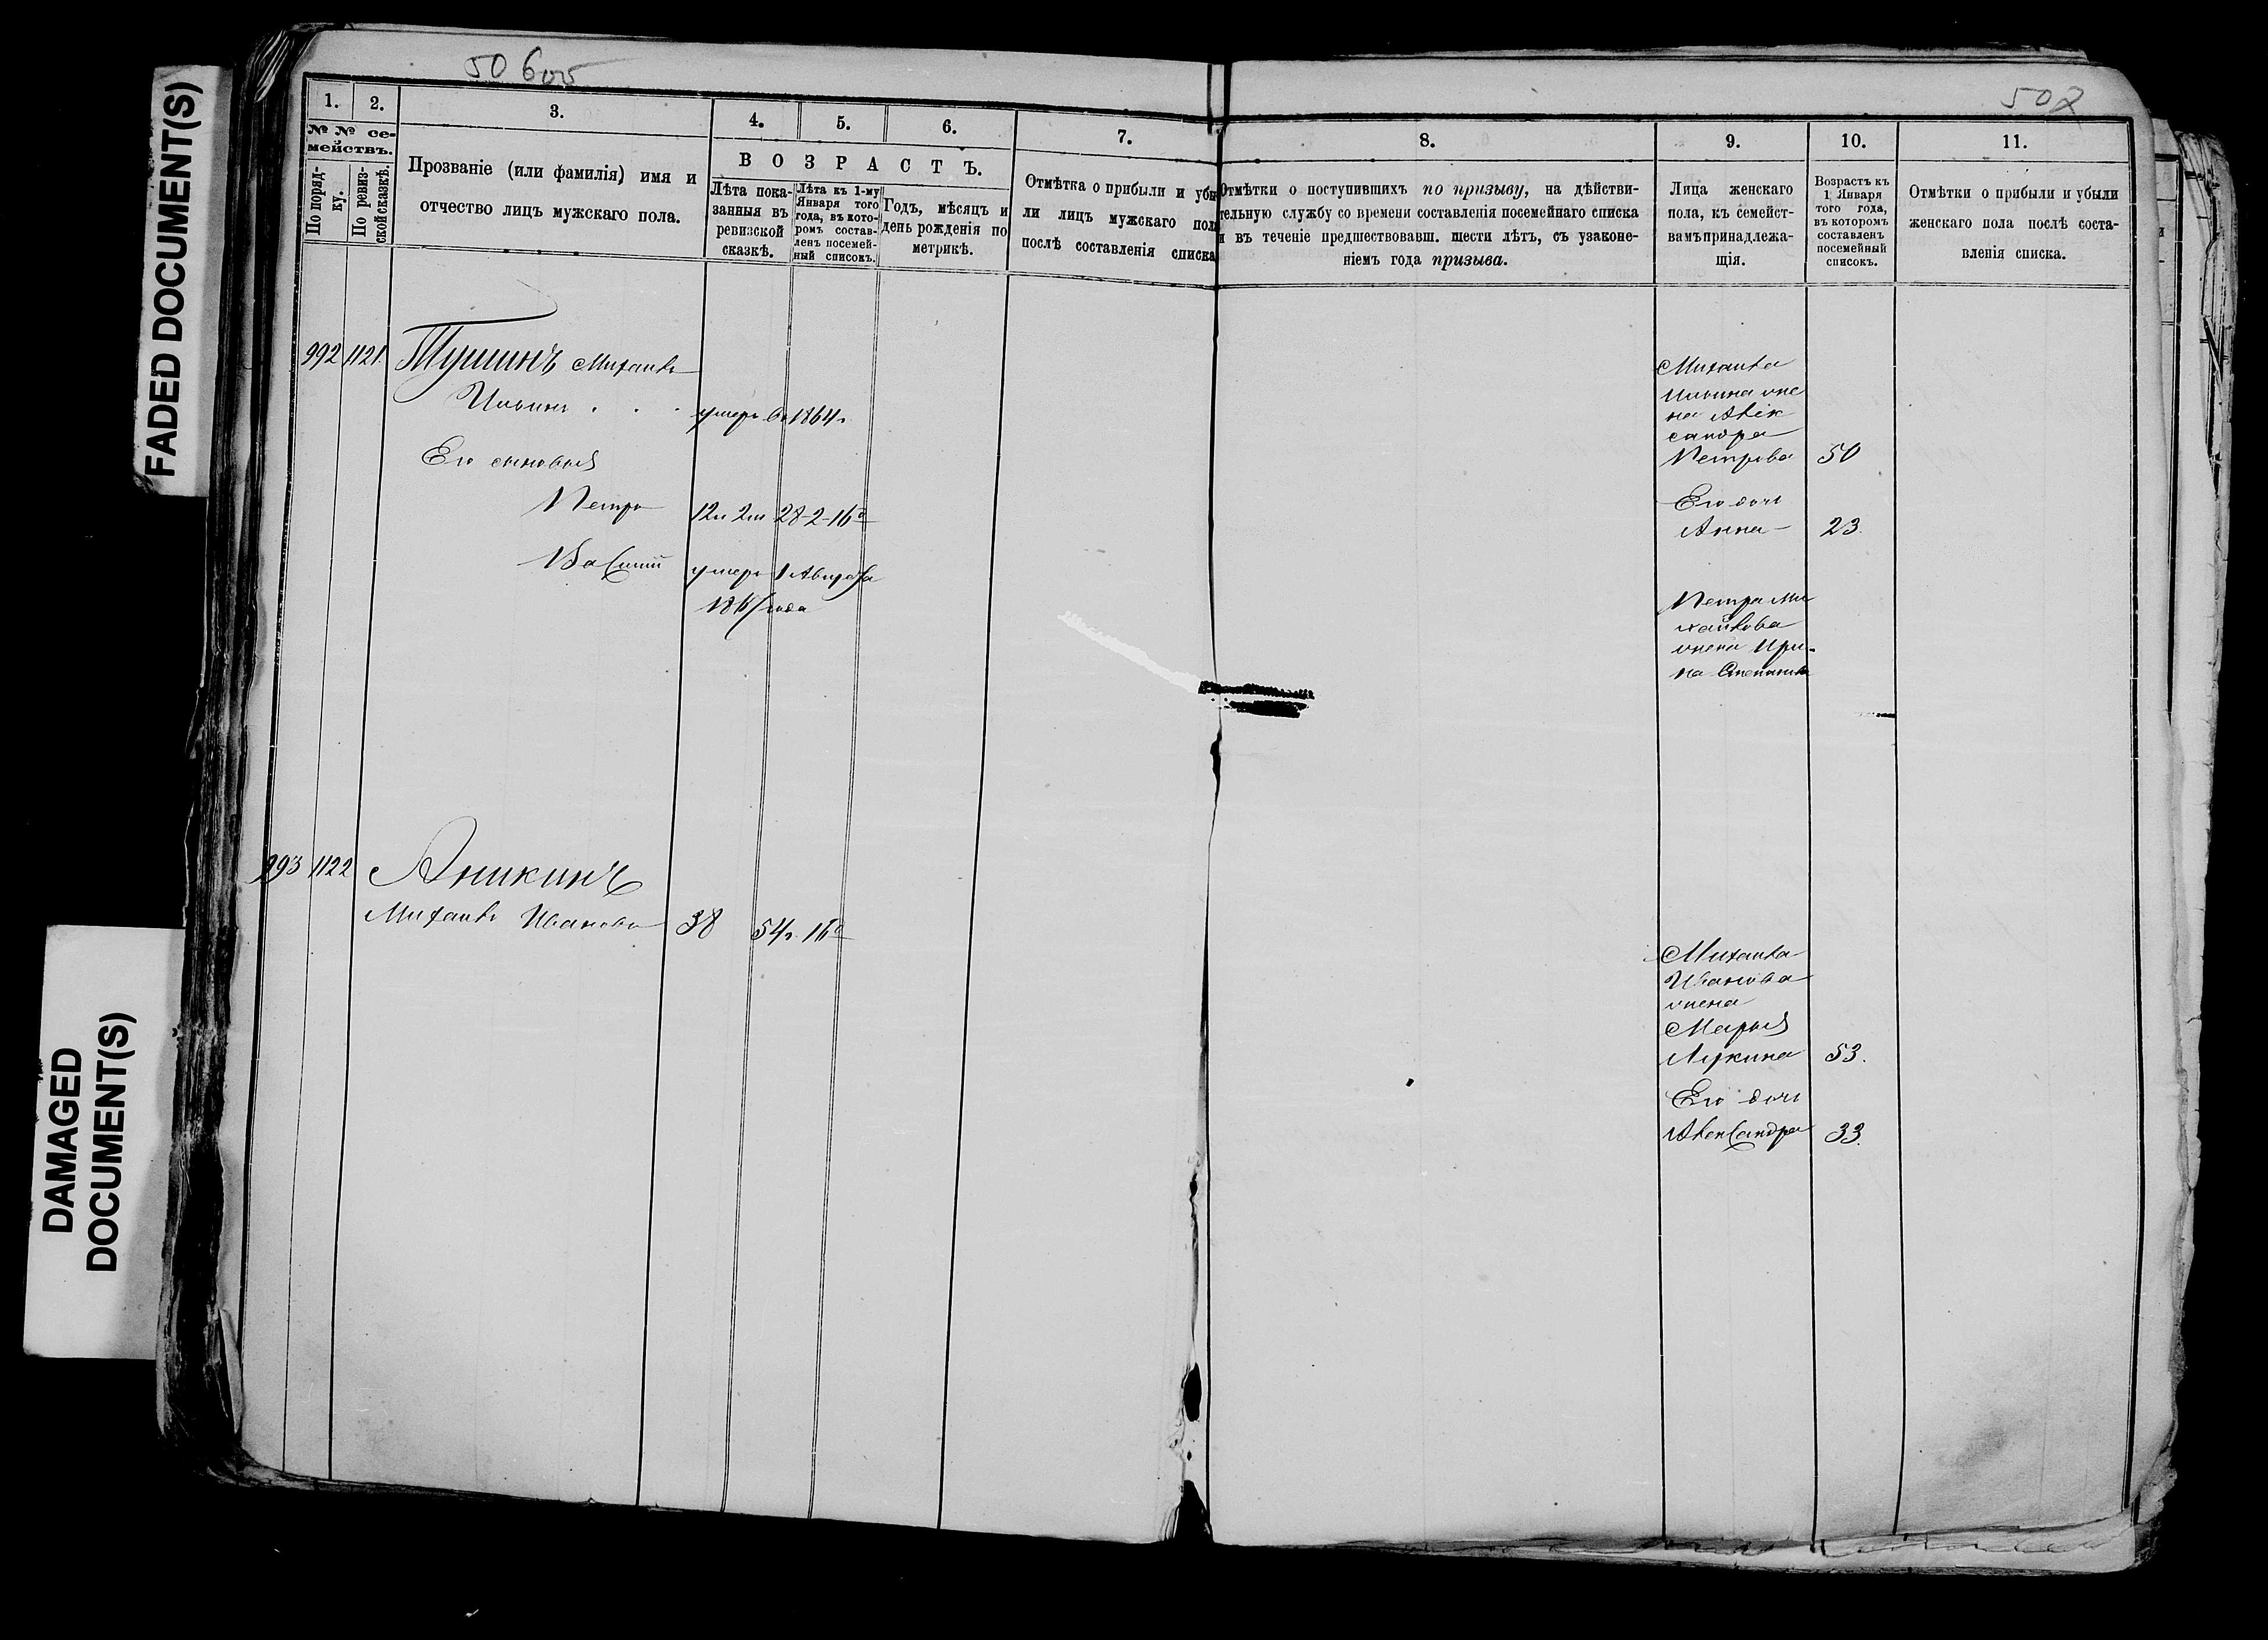 FADED DOCUMENT(S)
DAMAGED
DOCUMENT(S)
502
1. 2. 3. 4. 5. 6. 7.
№ № се-
мействъ.
По поряд-
ку.
По ревиз-
ской сказкѣ.
Прозваніе (или фамилія) имя и
отчество лицъ мужскаго пола.
ВОЗРАСТЪ.
Лѣта пока-
занныя въ
ревизской
сказкѣ.
Лѣта къ 1-му
Января того
года, въ кото-
ромъ состав-
ленъ посемей-
ный списокъ.
Годъ, мѣсяцъ и
день рожденія по
метрикѣ.
Отмѣтка о прибыли и убы
ли лицъ мужскаго пола
послѣ составленія списка
992 1121. Тушинъ Михаилъ
Ильинъ . . . умеръ въ 1864 г.
Его сыновья
Петръ 12 л 2 м 28-2-16
Василій умеръ 1 Августа
года
993 1122 Аникинъ
Михаилъ Ивановъ 38 54 г. 16
8. 9. 10. 11.
Отмѣтки о поступившихъ по призыву, на дѣйстви-
тельную службу со времени составленія посемейнаго списка
и въ теченіе предшествовавш. шести лѣтъ, съ узаконе-
ніемъ года призыва.
Лица женскаго
пола, къ семейст-
вамъ принадлежа-
щія.
Возрастъ къ
1 Января
того года,
въ которомъ
составленъ
посемейный
списокъ.
Отмѣтки о прибыли и убыли
женскаго пола послѣ соста-
вленія списка.
Михаила
Ильина же
на Алек
сандра
Петрова 50
Его дочь
Анна 23.
Петра Ми
хайлова
жена Ири-
на Степанова
Михаила
Иванова
жена
Марья
Лукина 53.
Его дочь
Александра 33.